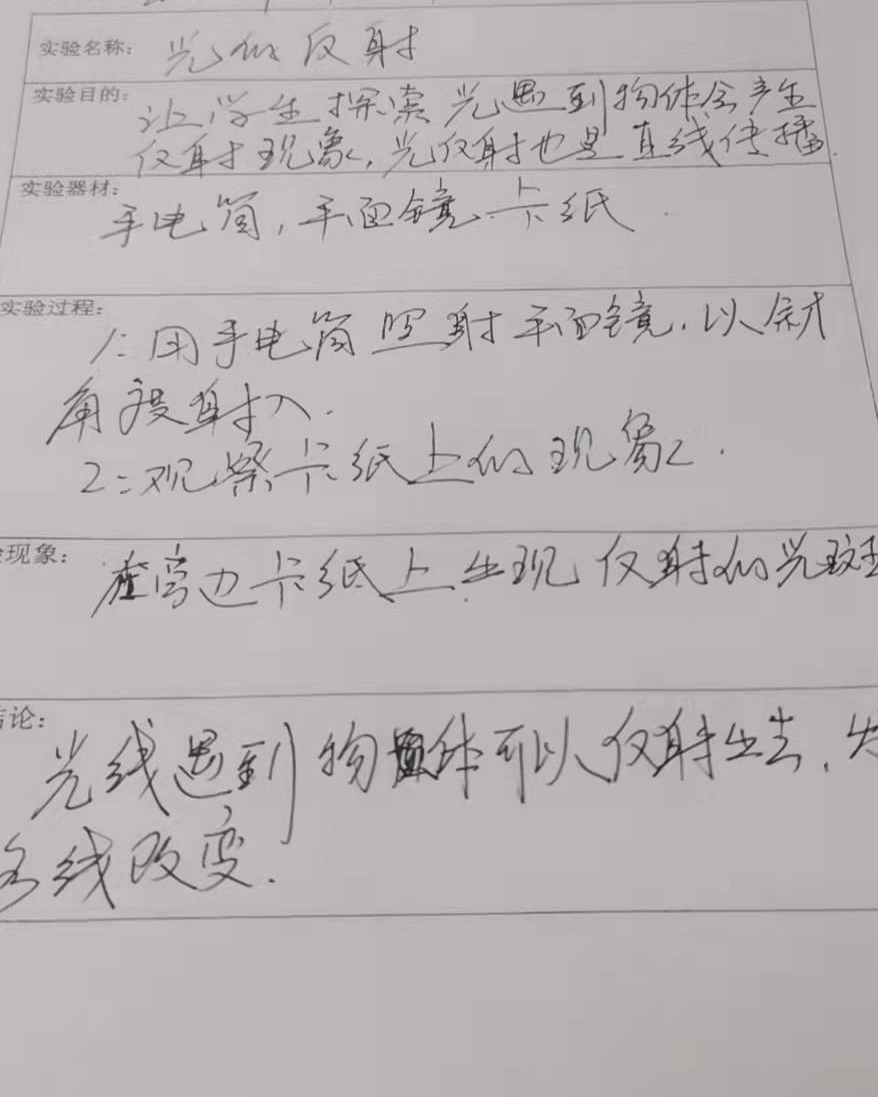 实验名称: 光的反射
实验目的: 让学生探索光遇到物体会产生
反射现象,光反射也是直线传播.
实验器材:
手电筒,平面镜.卡纸.
实验过程:
1:用手电筒照射平面镜.以斜
角度射入.
2:观察卡纸上的现象.
现象: 在旁边卡纸上出现反射的光斑
论:
光线遇到物体可以反射出去,
线改变.